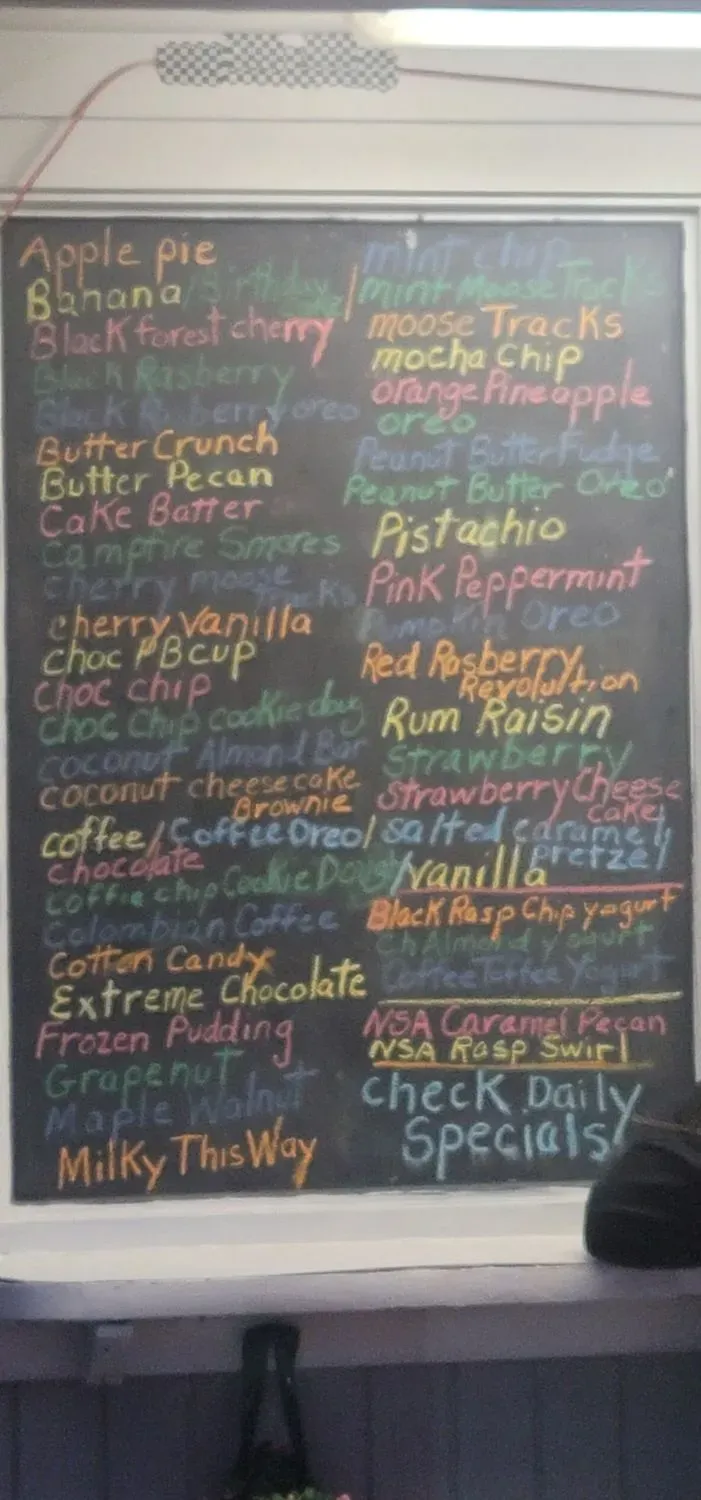 Apple pie
Banana/Birthday Cake/
Black forest cherry
Black Rasberry
Black Rasberry oreo
Butter Crunch
Butter Pecan
Cake Batter
Campfire Smores
cherry moose
Tracks
cherry vanilla
choc PB cup
choc chip
choc chip cookie doug
coconut Almond Bar
coconut cheesecake
Brownie
coffee/Coffee Oreo/
chocolate
coffie chip Cookie Dough
Colombian Coffee
Cotten Candy
Extreme Chocolate
Frozen Pudding
Grapenut
Maple Walnut
Milky This Way
mint chip
mint Moose Tracks
moose Tracks
mocha Chip
orange Pineapple
oreo
Peanut Butter Fudge
Peanut Butter Oreo
Pistachio
Pink Peppermint
Pumpkin Oreo
Red Rasberry
Revolultion
Rum Raisin
Strawberry
Strawberry Cheese
cake
salted caramel
pretzel
/vanilla
Black Rasp Chip yogurt
Ch Almond yogurt
Coffee Toffee Yogurt
NSA Caramel Pecan
NSA Rasp Swirl
Check Daily
Specials!